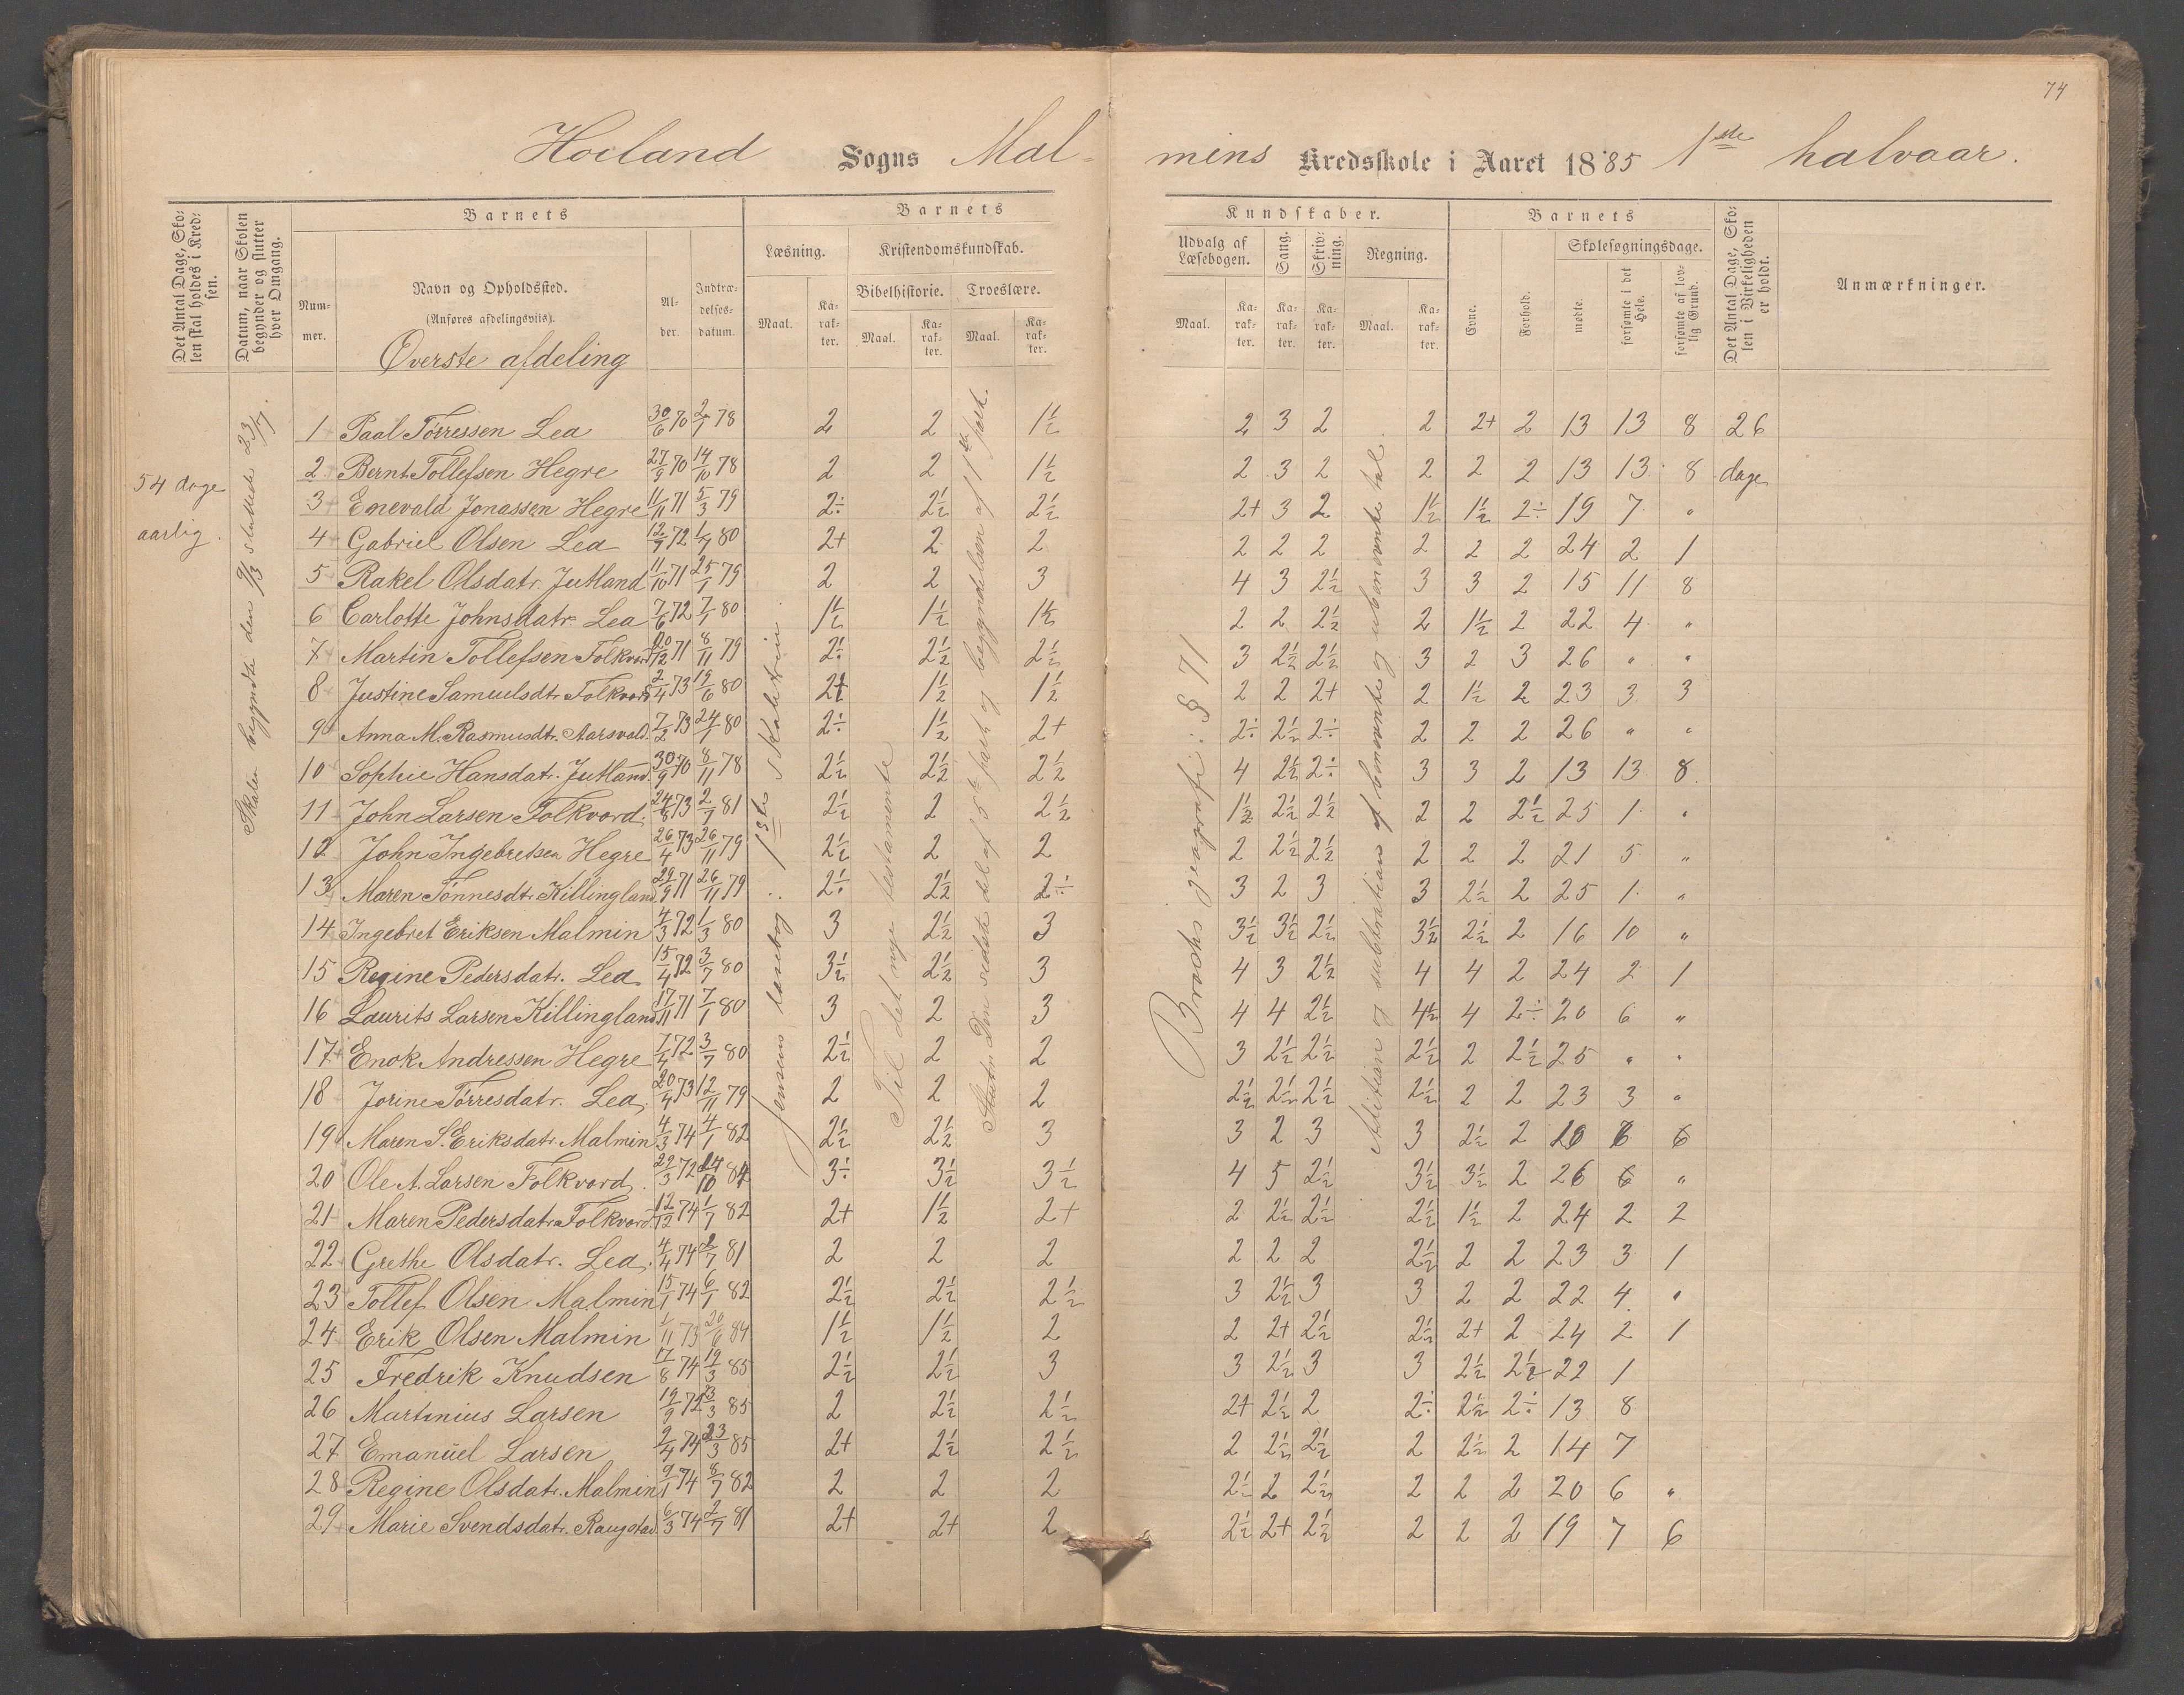 74
Høiland Sogns Mal-
mins Kredsskole i Aaret 1885 1ste halvaar.
Det Antal Dage, Sko-
len skal holdes i Kred-
sen.
Datum, naar Skolen
begynder og slutter
hver Omgang.
Barnets
Num-
mer.
Navn og Opholdssted.
(Anføres afdelingsviis).
Øverste afdeling
Al-
der.
Indtræ-
delses-
datum.
Barnets
Læsning.
Maal.
Ka-
rak-
ter.
Kristendomskundskab.
Bibelhistorie.
Maal.
Ka-
rak-
ter.
Troeslære.
Maal.
Ka-
rak-
ter.
Kundskaber.
Udvalg af
Læsebogen.
Maal.
Ka-
rak-
ter.
Sang.
Ka-
rak-
ter.
Skriv-
ning.
Ka-
rak-
ter.
Regning.
Maal.
Ka-
rak-
ter.
Barnets
Evne.
Forhold.
Skolesøgningsdage.
mødte.
forsømte i det
Hele.
forsømte af lov-
lig Grund.
Det Antal Dage, Sko-
len i Virkeligheden
er holdt.
Anmærkninger.
54 dage
aarlig.
Skolen begyndte den 9/3 sluttede 23/7.
Jensens læsebog: 1ste skoletrin.
Til det nye testamente
Brochs geografi: § 71
Adition og subtraktion af benævnte og ubenævnte tal.
26
dage
1 Paal Tørressen Lea 30/6 70 2/1 78 2 2 1½ 2 3 2 2 2+ 2 13 13 8
2 Bernt Tollefsen Hegre 27/9 70 14/10 78 2 2 1½ 2 3 2 2 2 2 13 13 8
3 Enevald Jonassen Hegre 11/11 71 5/3 79 2÷ 2½ 2½ 2+ 3 2 1½ 1½ 2÷ 19 7 "
4 Gabriel Olsen Lea 12/7 72 1/7 80 2+ 2 2 2 2 2 2 2 2 24 2 1
5 Rakel Olsdatr. Jutland 11/10 71 25/1 79 2 2 3 4 3 2½ 3 3 2 15 11 8
6 Carlotte Johnsdatr. Lea 7/6 72 7/1 80 1½ 1½ 1½ 2 2 2½ 2 1½ 2 22 4 "
7 Martin Tollefsen Folkvord 20/12 71 8/11 79 2÷ 2½ 2½ 3 2½ 2½ 3 2 3 26 " "
8 Justine Samuelsdtr. Folkvord 2/4 73 19/6 80 2+ 1½ 1½ 2 2 2+ 2 1½ 2 23 3 3
9 Anna M. Rasmusdtr. Aarsvold. 7/2 73 24/1 80 2÷ 1½ 2+ 2÷ 2½ 2÷ 2 2 2 26 " "
10 Sophie Hansdatr. Jutland. 30/9 70 8/11 78 2½ 2½ 2½ 4 2½ 2÷ 3 3 2 13 13 8
11 John Larsen Folkvord. 24/8 73 2/7 81 2½ 2 2½ 1½ 2½ 2½ 2 2 2½ 25 1 "
12 John Ingebretsen Hegre 26/4 73 26/11 79 2½ 2 2 2 2½ 2½ 2 2 2 21 5 "
13 Maren Tønnesdtr. Killingland 29/9 71 26/11 79 2÷ 2½ 2÷ 3 2 3 3 2½ 2 25 1 "
14 Ingebret Eriksen Malmin 4/3 72 1/3 80 3 2½ 3 3½ 3½ 2½ 3½ 2½ 2 16 10 "
15 Regine Pedersdatr. Lea 15/4 72 3/7 80 3½ 2½ 3 4 3 2½ 4 4 2 24 2 1
16 Laurits Larsen Killingland 17/11 71 7/1 80 3 2 3 4 4 2½ 4½ 4 2÷ 20 6 "
17 Enok Andressen Hegre 7/4 72 3/7 80 2½ 2 2 3 2½ 2½ 2½ 2 2½ 25 " "
18 Jorine Tørresdatr. Lea 20/4 73 12/11 79 2 2 2 2½ 2½ 2½ 2½ 2 2 23 3 "
19 Maren S. Eriksdatr. Malmin 4/3 74 4/1 82 2½ 2½ 3 3 2 3 3 2½ 2 6
20 Ole A. Larsen Folkvord 22/3 72 84 3÷ 3½ 3½ 4 5 2½ 3½ 3½ 2 26 6 "
21 Maren Pedersdatr. Folkvord 12/12 74 1/7 82 2+ 1½ 2+ 2 2½ 2½ 2½ 1½ 2 24 2 2
22 Grethe Olsdatr. Lea. 4/4 74 81 2 2 2 2 2 2 2½ 2 2 23 3 1
23 Tollef Olsen Malmin 15/1 74 6/1 82 2½ 2½ 2½ 3 2½ 3 3 2 2 22 4 "
24 Erik Olsen Malmin 1/11 73 20/6 84 1½ 1½ 2 2 2+ 2½ 2½ 2+ 2 24 2 1
25 Fredrik Knudsen 17/8 74 19/3 85 2½ 2½ 3 3 2½ 3 3 2½ 2½ 22 1
26 Martinius Larsen 19/9 72 85 2 2½ 2½ 2+ 2½ 2 2÷ 2½ 2÷ 13 8
27 Emanuel Larsen 2/4 74 23/3 85 2+ 2½ 2½ 2 2½ 2½ 2 2½ 2 14 7
28 Regine Olsdatr. Malmin 9/1 74 8/7 82 2 2 2 2½ 2 2½ 2 2 2 20 6 "
29 Marie Svendsdatr. Raugstad 6/3 74 2/7 81 2+ 2+ 2 2½ 2+ 2½ 2 2 2 19 7 6